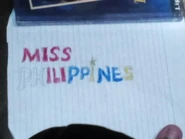 MISS
PHILIPPINES